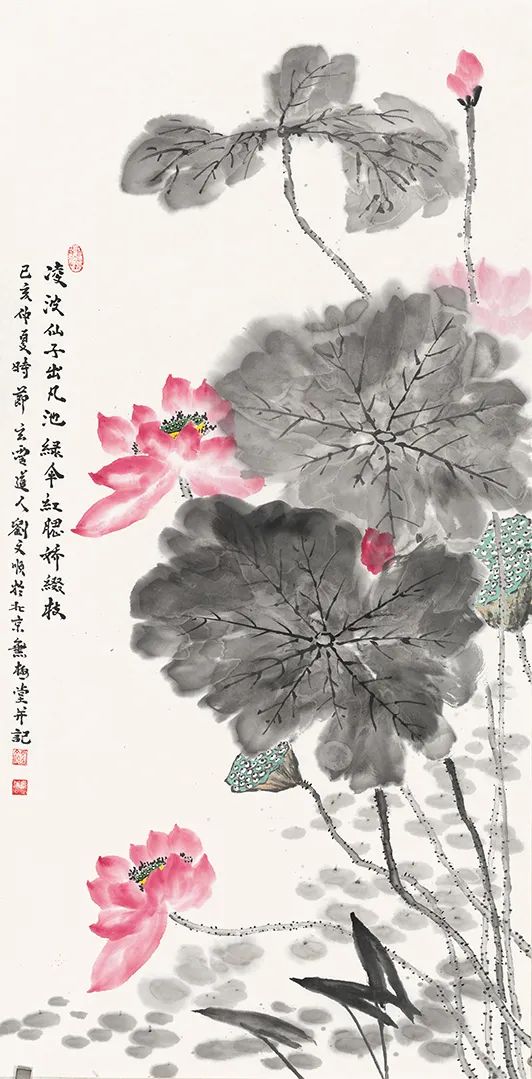 凌波仙子出凡池緑伞红腮娇缀枝
己亥仲夏時節玄雲道人劉文順於北京無極堂并記